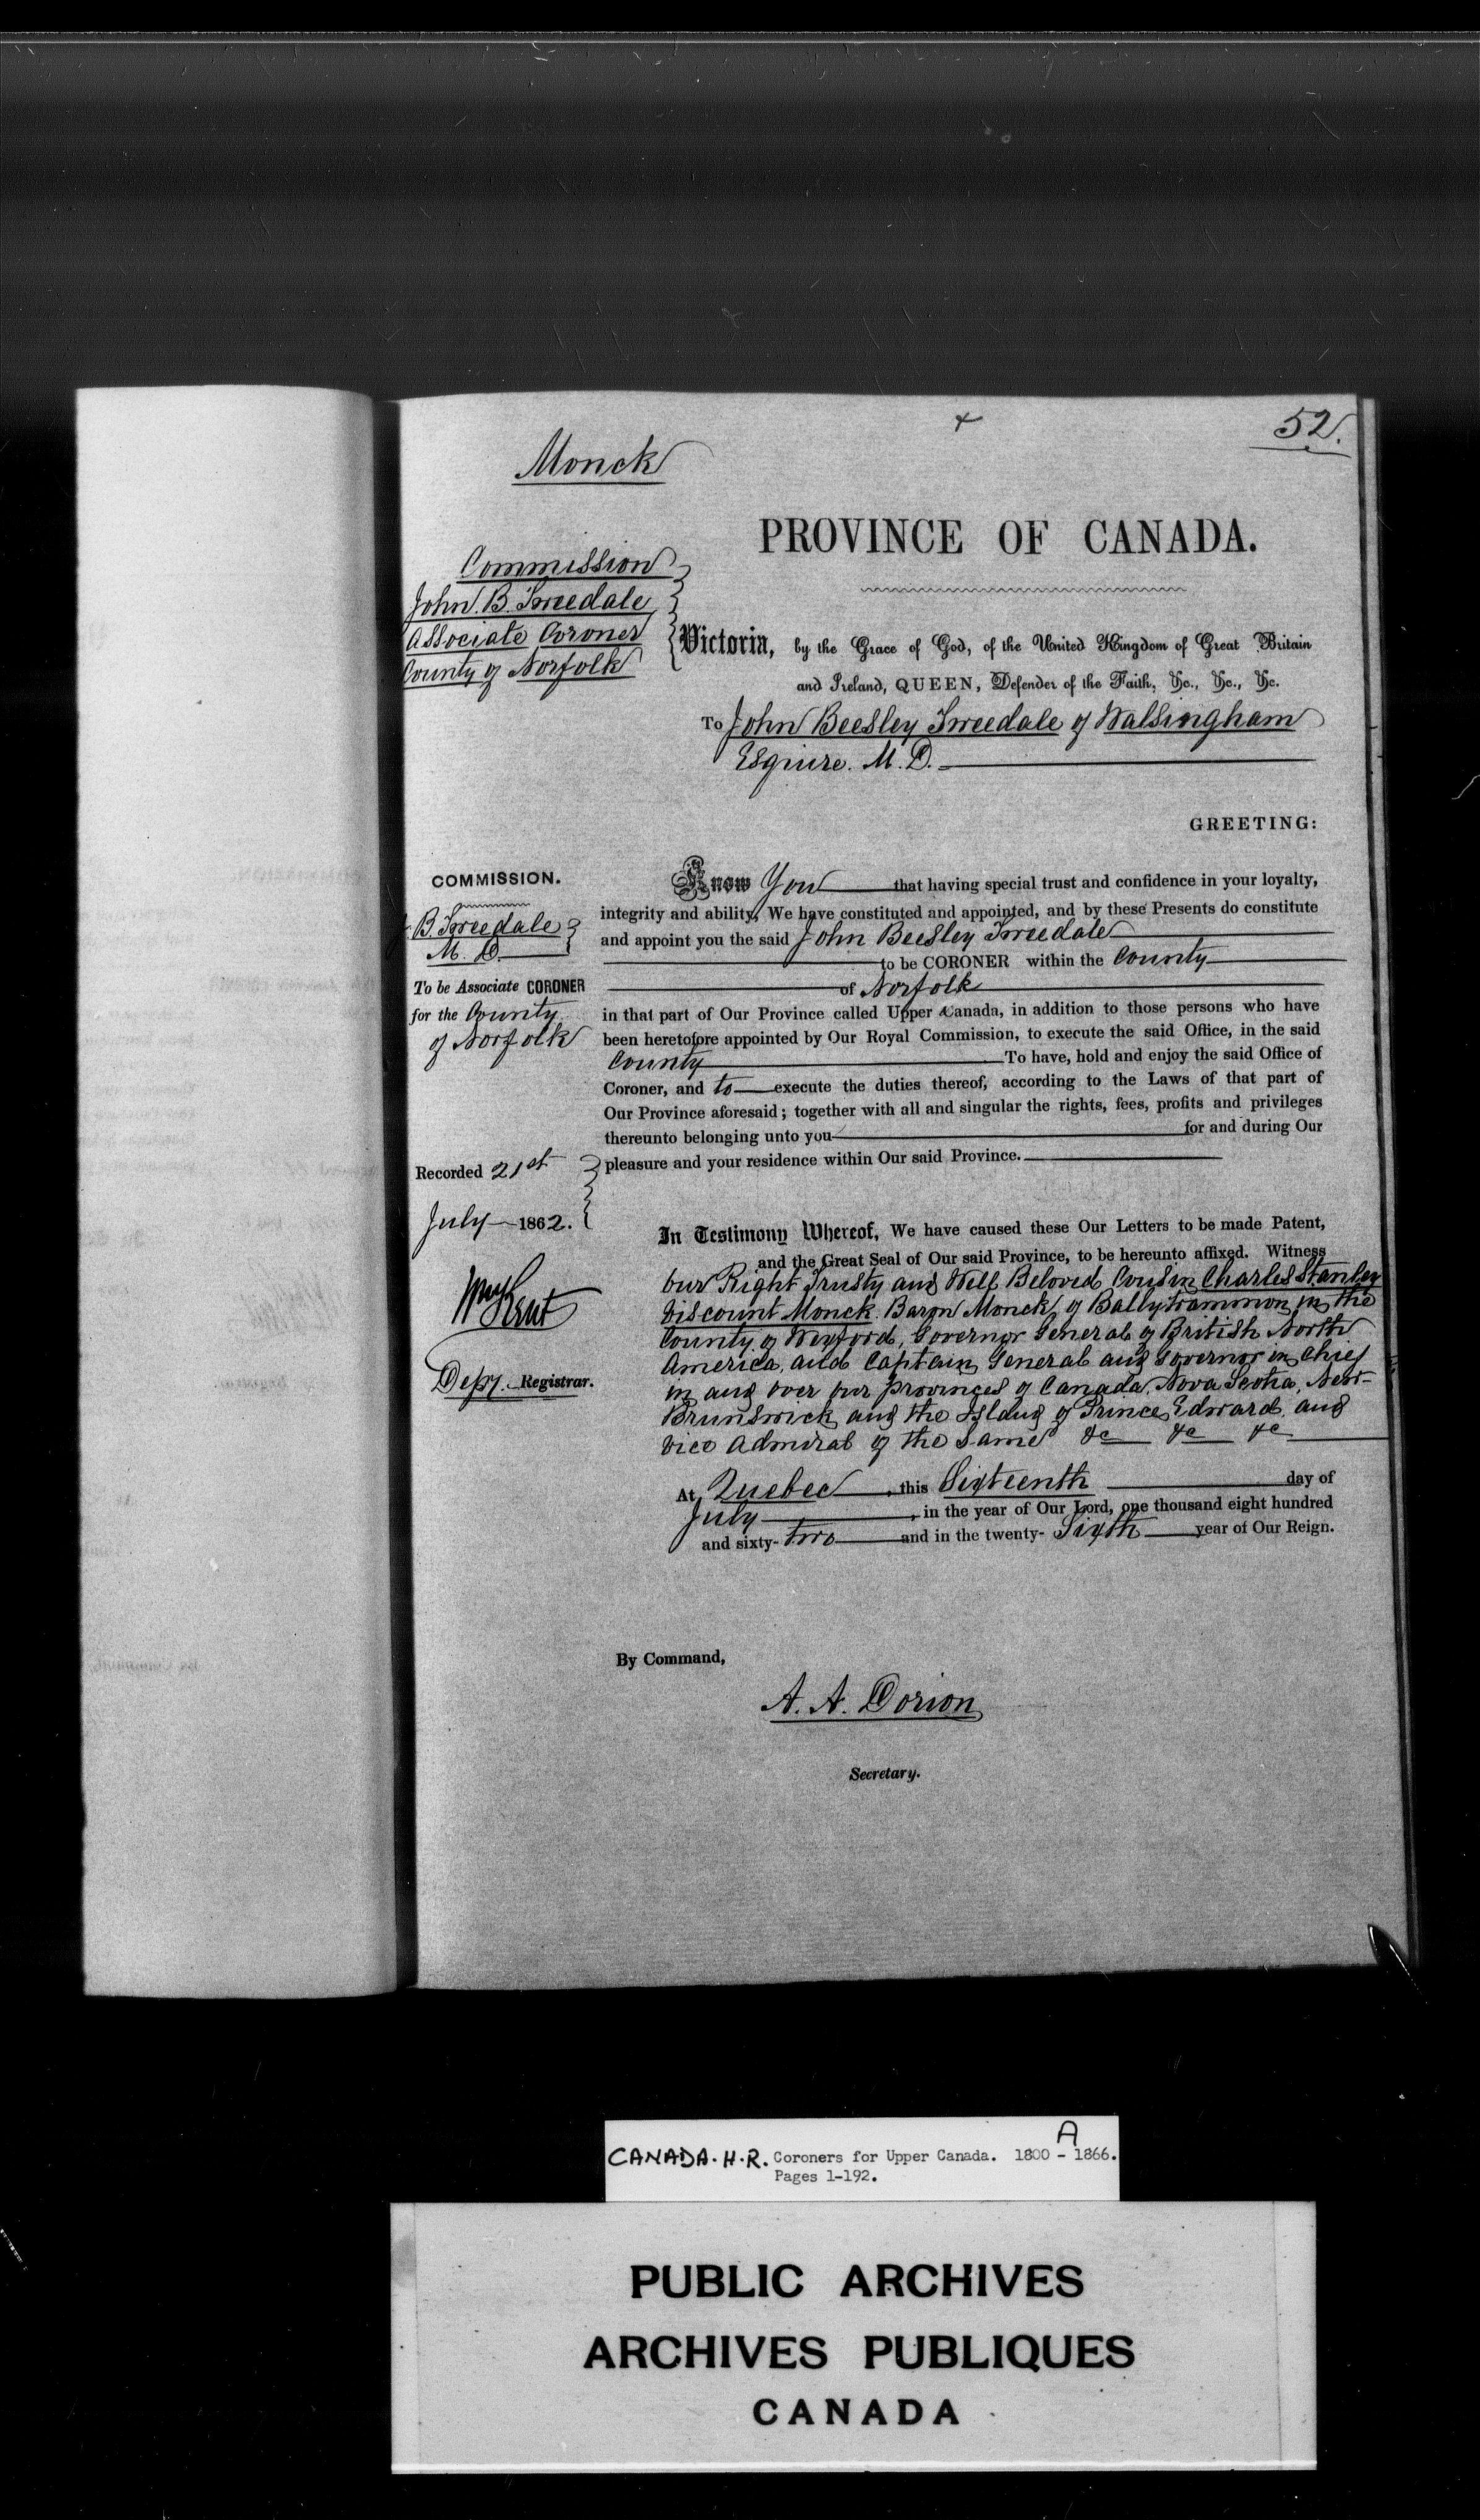 52.
Monck
PROVINCE OF CANADA.
Commission
John. B. Tweedale
Associate Coroner
County of Norfolk
Victoria, by the Grace of God, of the United Kingdom of Great Britain
and Ireland, QUEEN, Defender of the Faith, &c., &c., &c.
To John Beesley Tweedale of Walsingham
Esquire. M. D.
GREETING:
COMMISSION.
B. Tweedale
M. D.
To be Associate CORONER
for the County
of Norfolk
Know You that having special trust and confidence in your loyalty,
integrity and ability, We have constituted and appointed, and by these Presents do constitute
and appoint you the said John Beesley Tweedale
to be CORONER within the County
of Norfolk
in that part of Our Province called Upper Canada, in addition to those persons who have
been heretofore appointed by Our Royal Commission, to execute the said Office, in the said
County To have, hold and enjoy the said Office of
Coroner, and to execute the duties thereof, according to the Laws of that part of
Our Province aforesaid; together with all and singular the rights, fees, profits and privileges
thereunto belonging unto you for and during Our
pleasure and your residence within Our said Province.
Recorded 21st
July 1862.
Wm Kent
Depy. Registrar.
In Testimony Whereof, We have caused these Our Letters to be made Patent,
and the Great Seal of Our said Province, to be hereunto affixed. Witness
Our Right Trusty and Well Beloved Cousin Charles Stanley
Viscount Monck. Baron Monck of Ballytrammon in the
County of Wexford, Governor General of British North
America, and Captain General and Governor in Chief
in and over our provinces of Canada, Nova Scotia, New-
Brunswick and the Island of Prince Edward, and
Vice Admiral of the Same &c &c &c
At Quebec, this Sixteenth day of
July, in the year of Our Lord, one thousand eight hundred
and sixty-two and in the twenty-Sixth year of Our Reign.
By Command,
A. A. Dorion
Secretary.
A
CANADA. H. R. Coroners for Upper Canada. 1800 - 1866.
Pages 1-192.
PUBLIC ARCHIVES
ARCHIVES PUBLIQUES
CANADA